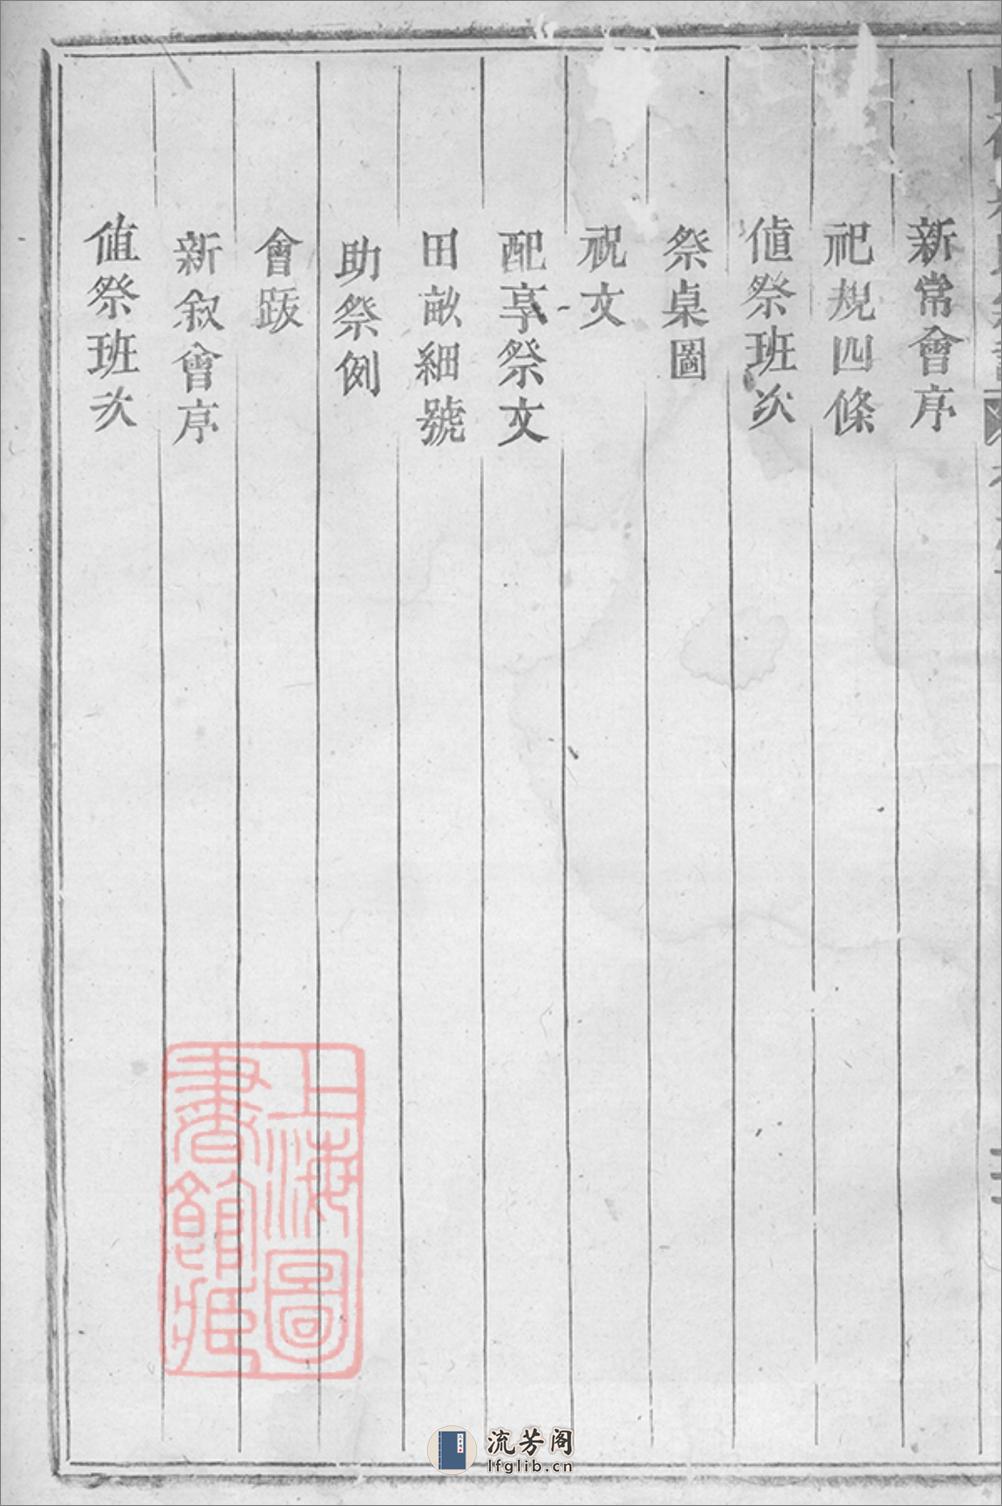 新常會序
祀規四條
值祭班次
祭桌圖
祝文
配享祭文
田畝細號
助祭例
會跋
新叙會序
值祭班次
上海圖
書館藏
流芳阁
lfglib.cn